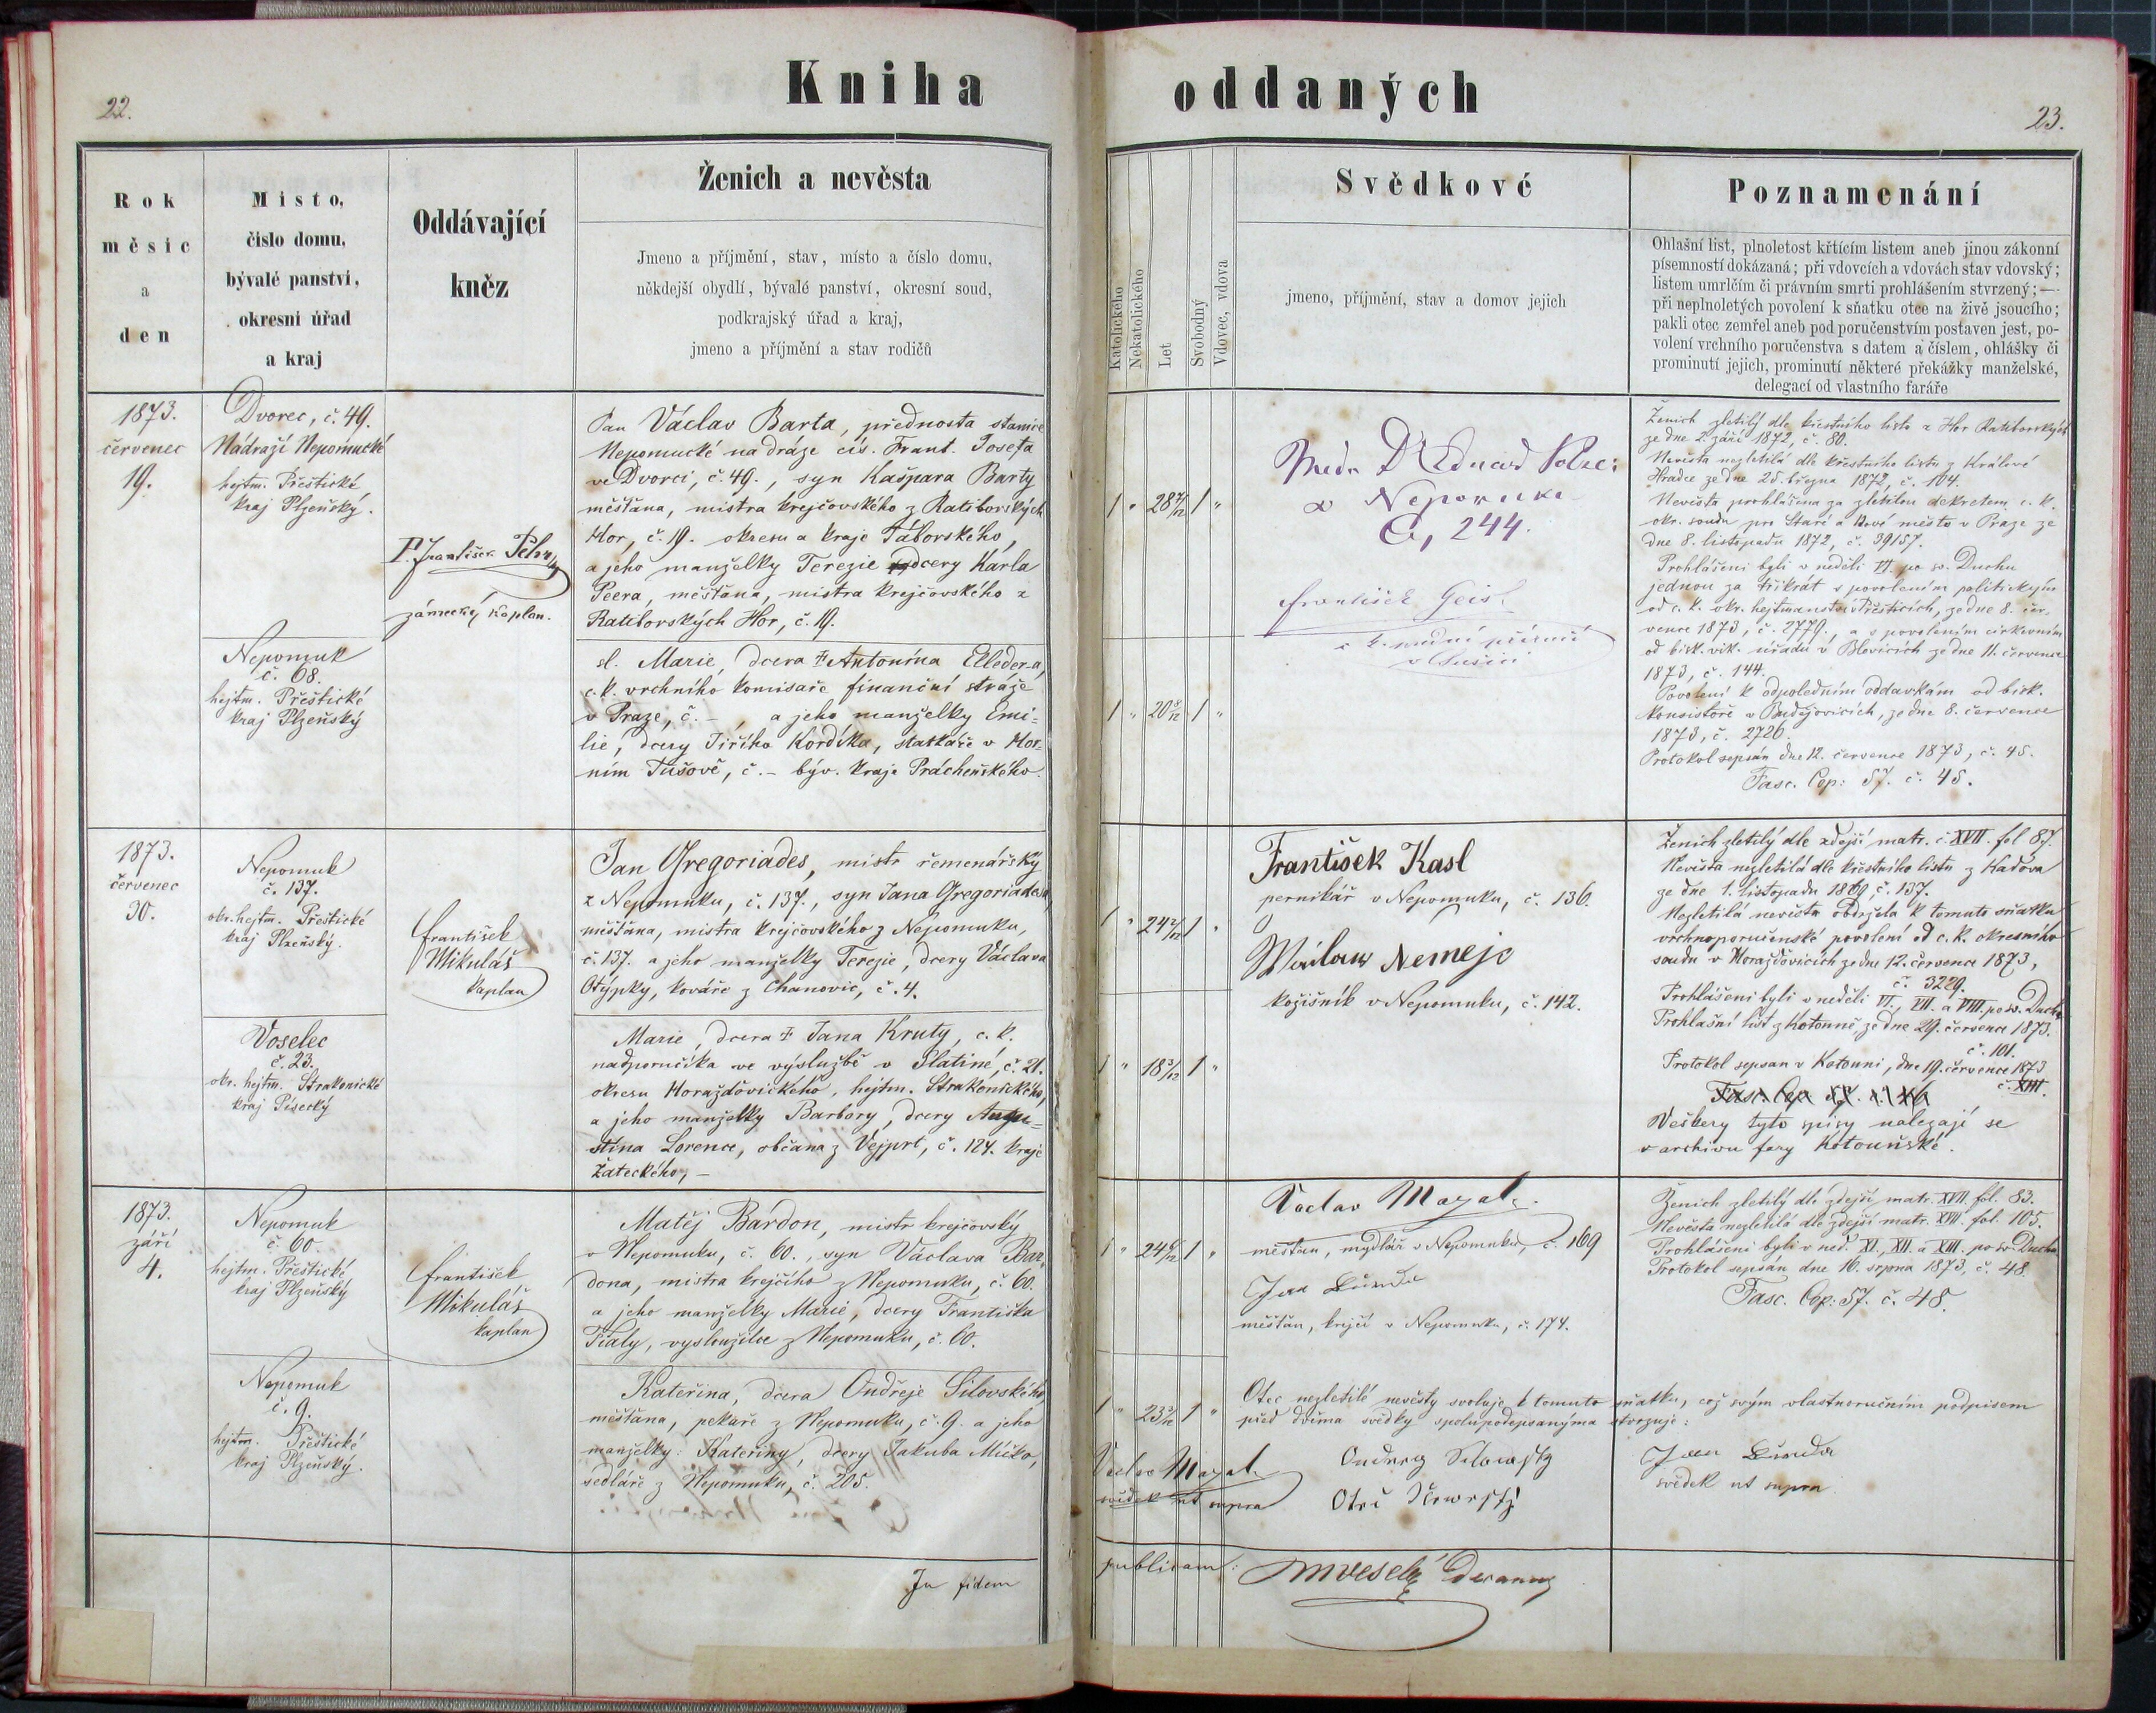 22.
Kniha
Rok
měsíc
a
den
Místo,
číslo domu,
bývalé panství,
okresní úřad
a kraj
Oddávající
kněz
Ženich a nevěsta
Jmeno a příjmění, stav, místo a číslo domu,
někdejší obydlí, bývalé panství, okresní soud,
podkrajský úřad a kraj,
jmeno a příjmění a stav rodičů
1873.
červenec
19.
Dvorec, č. 49.
Nádraží Nepomucké
hejtm. Přeštické
kraj Plzeňský.
P. František
zámecký kaplan.
Pan Václav Barta, přednosta stanice
Nepomucké na dráze cís. Frant. Josefa
ve Dvorci, č. 49., syn Kašpara Barty
měšťana, mistra krejčovského z Ratiborských
Hor, č. 19. okresu a kraje Táborského,
a jeho manželky Terezie dcery Karla
Peera, měšťana, mistra krejčovského z
Ratiborských Hor, č. 19.
Nepomuk
č. 68.
hejtm. Přeštické
kraj Plzeňský
sl. Marie, dcera † Antonína
c. k. vrchního komisaře finanční stráže
v Praze, č. –, a jeho manželky Emi-
lie, dcery Jiřího Kordíka, statkáře v Hor-
ním Tušově, č. – býv. kraje Prácheňského.
1873.
červenec
30.
Nepomuk
č. 137.
okr. hejtm. Přeštické
kraj Plzeňský.
František
Mikuláš
kaplan
Jan Gregoriades, mistr řemenářský
z Nepomuku, č. 137., syn Jana Gregoriadesa
měšťana, mistra krejčovského z Nepomuku,
č. 137. a jeho manželky Terezie, dcery Václava
Otýpky, kováře z Chanovic, č. 4.
Voselec
č. 23.
okr. hejtm. Strakonické
kraj Písecký
Marie, dcera † Jana Kruty, c. k.
nadporučíka ve výslužbě v Slatině, č. 21.
okresu Horažďovického, hejtm. Strakonického,
a jeho manželky Barbory, dcery Augu-
stina Lorence, občana z Vejprt, č. 124. kraje
Žateckého, –
1873.
září
4.
Nepomuk
č. 60.
hejtm. Přeštické
kraj Plzeňský
František
Mikuláš
kaplan
Matěj Bárdon, mistr krejčovský
v Nepomuku, č. 60., syn Václava Bar-
dona, mistra krejčího z Nepomuku, č. 60.
a jeho manželky Marie, dcery Františka
Fialy, vysloužilce z Nepomuku, č. 60.
Nepomuk
č. 9.
hejtm. Přeštické
kraj Plzeňský.
Kateřina, dcera Ondřeje Silovského
měšťana, pekaře z Nepomuku, č. 9. a jeho
manželky: Kateřiny, dcery Jakuba Míčko,
sedláře z Nepomuku, č. 205.
In fidem
oddaných
23.
Katolického
Nekatolického
Let
Svobodný
Vdovec, vdova
Svědkové
jmeno, příjmění, stav a domov jejich
Poznamenání
Ohlašní list, plnoletost křtícím listem aneb jinou zákonní
písemností dokázaná; při vdovcích a vdovách stav vdovský;
listem umrlčím či právním smrti prohlášením stvrzený; —
při neplnoletých povolení k sňatku otce na živě jsoucího;
pakli otec zemřel aneb pod poručenstvím postaven jest, po-
volení vrchního poručenstva s datem a číslem, ohlášky či
prominutí jejich, prominutí některé překážky manželské,
delegací od vlastního faráře
1 " 28 1 "
Medr Dr Eduard
v Nepomuku
Č, 244.
František Geis
c. k.
v Sušici
1 " 20 1 "
Ženich zletilý dle křestního listu z Hor Ratiborských
ze dne 2. září 1872, č. 80.
Nevěsta nezletilá dle křestního listu z Králové
Hradce ze dne 25. března 1872, č. 104.
Nevěsta prohlášena za zletilou dekretem c. k.
okr. soudu pro Staré a Nové město v Praze ze
dne 8. listopadu 1872, č. 39157.
Prohlášeni byli v neděli VI. po sv. Duchu
jednou za třikrát s povolením politickým
od c. k. okr. hejtmanství v Přešticích, ze dne 8. čer-
vence 1873, č. 2779., a s povolením církevním
od bisk. vik. úřadu v Blovicích ze dne 11. července
1873, č. 144.
Povolení k odpoledním oddavkám od bisk.
konsistoře v Budějovicích, ze dne 8. července
1873, č. 2726.
Protokol sepsán dne 12. července 1873, č. 45.
Fasc. Cop: 57. č. 45.
1 " 24 1 "
František Kasl
pernikář v Nepomuku, č. 136.
Wáclaw Nemejc
kožišník v Nepomuku, č. 142.
1 " 18 1 "
Ženich zletilý dle zdejší matr. č. XVII. fol 87.
Nevěsta nezletilá dle křestního listu z Kadova
ze dne 1. listopadu 1869, č. 137.
Nezletilá nevěsta obdržela k tomuto sňatku
vrchnoporučenské povolení od c. k. okresního
soudu v Horažďovicích ze dne 12. července 1873,
č. 3229.
Prohlášeni byli v neděli VI., VII. a VIII. po sv. Duchu
Prohlašní list z Kotouně ze dne 29. července 1873.
č. 101.
Protokol sepsan v Kotouni, dne 19. července 1873
č. XIII.
Veškery tyto spisy nalezají se
v archivu fary Kotouňské.
1 " 24 1 "
Vaclav Mayal
měšťan, mydlář v Nepomuku, č. 169
Jan Bůnda
měšťan, krejčí v Nepomuku, č. 174.
Ženich zletilý dle zdejší matr. XVII. fol. 83.
Nevěsta nezletilá dle zdejší matr. XVII. fol. 105.
Prohlášeni byli v ned. XI., XII. a XIII. po sv. Duchu
Protokol sepsán dne 16. srpna 1873, č. 48.
Fasc. Cop: 57. č. 48.
1 " 23 1 "
Otec nezletilé nevěsty svoluje k tomuto sňatku, což svým vlastnoručním podpisem
před dvěma svědky spolupodepsanýma stvrzuje:
Vaclav Mayal
svědek ut supra
Jan Bůnda
svědek ut supra
publicam: